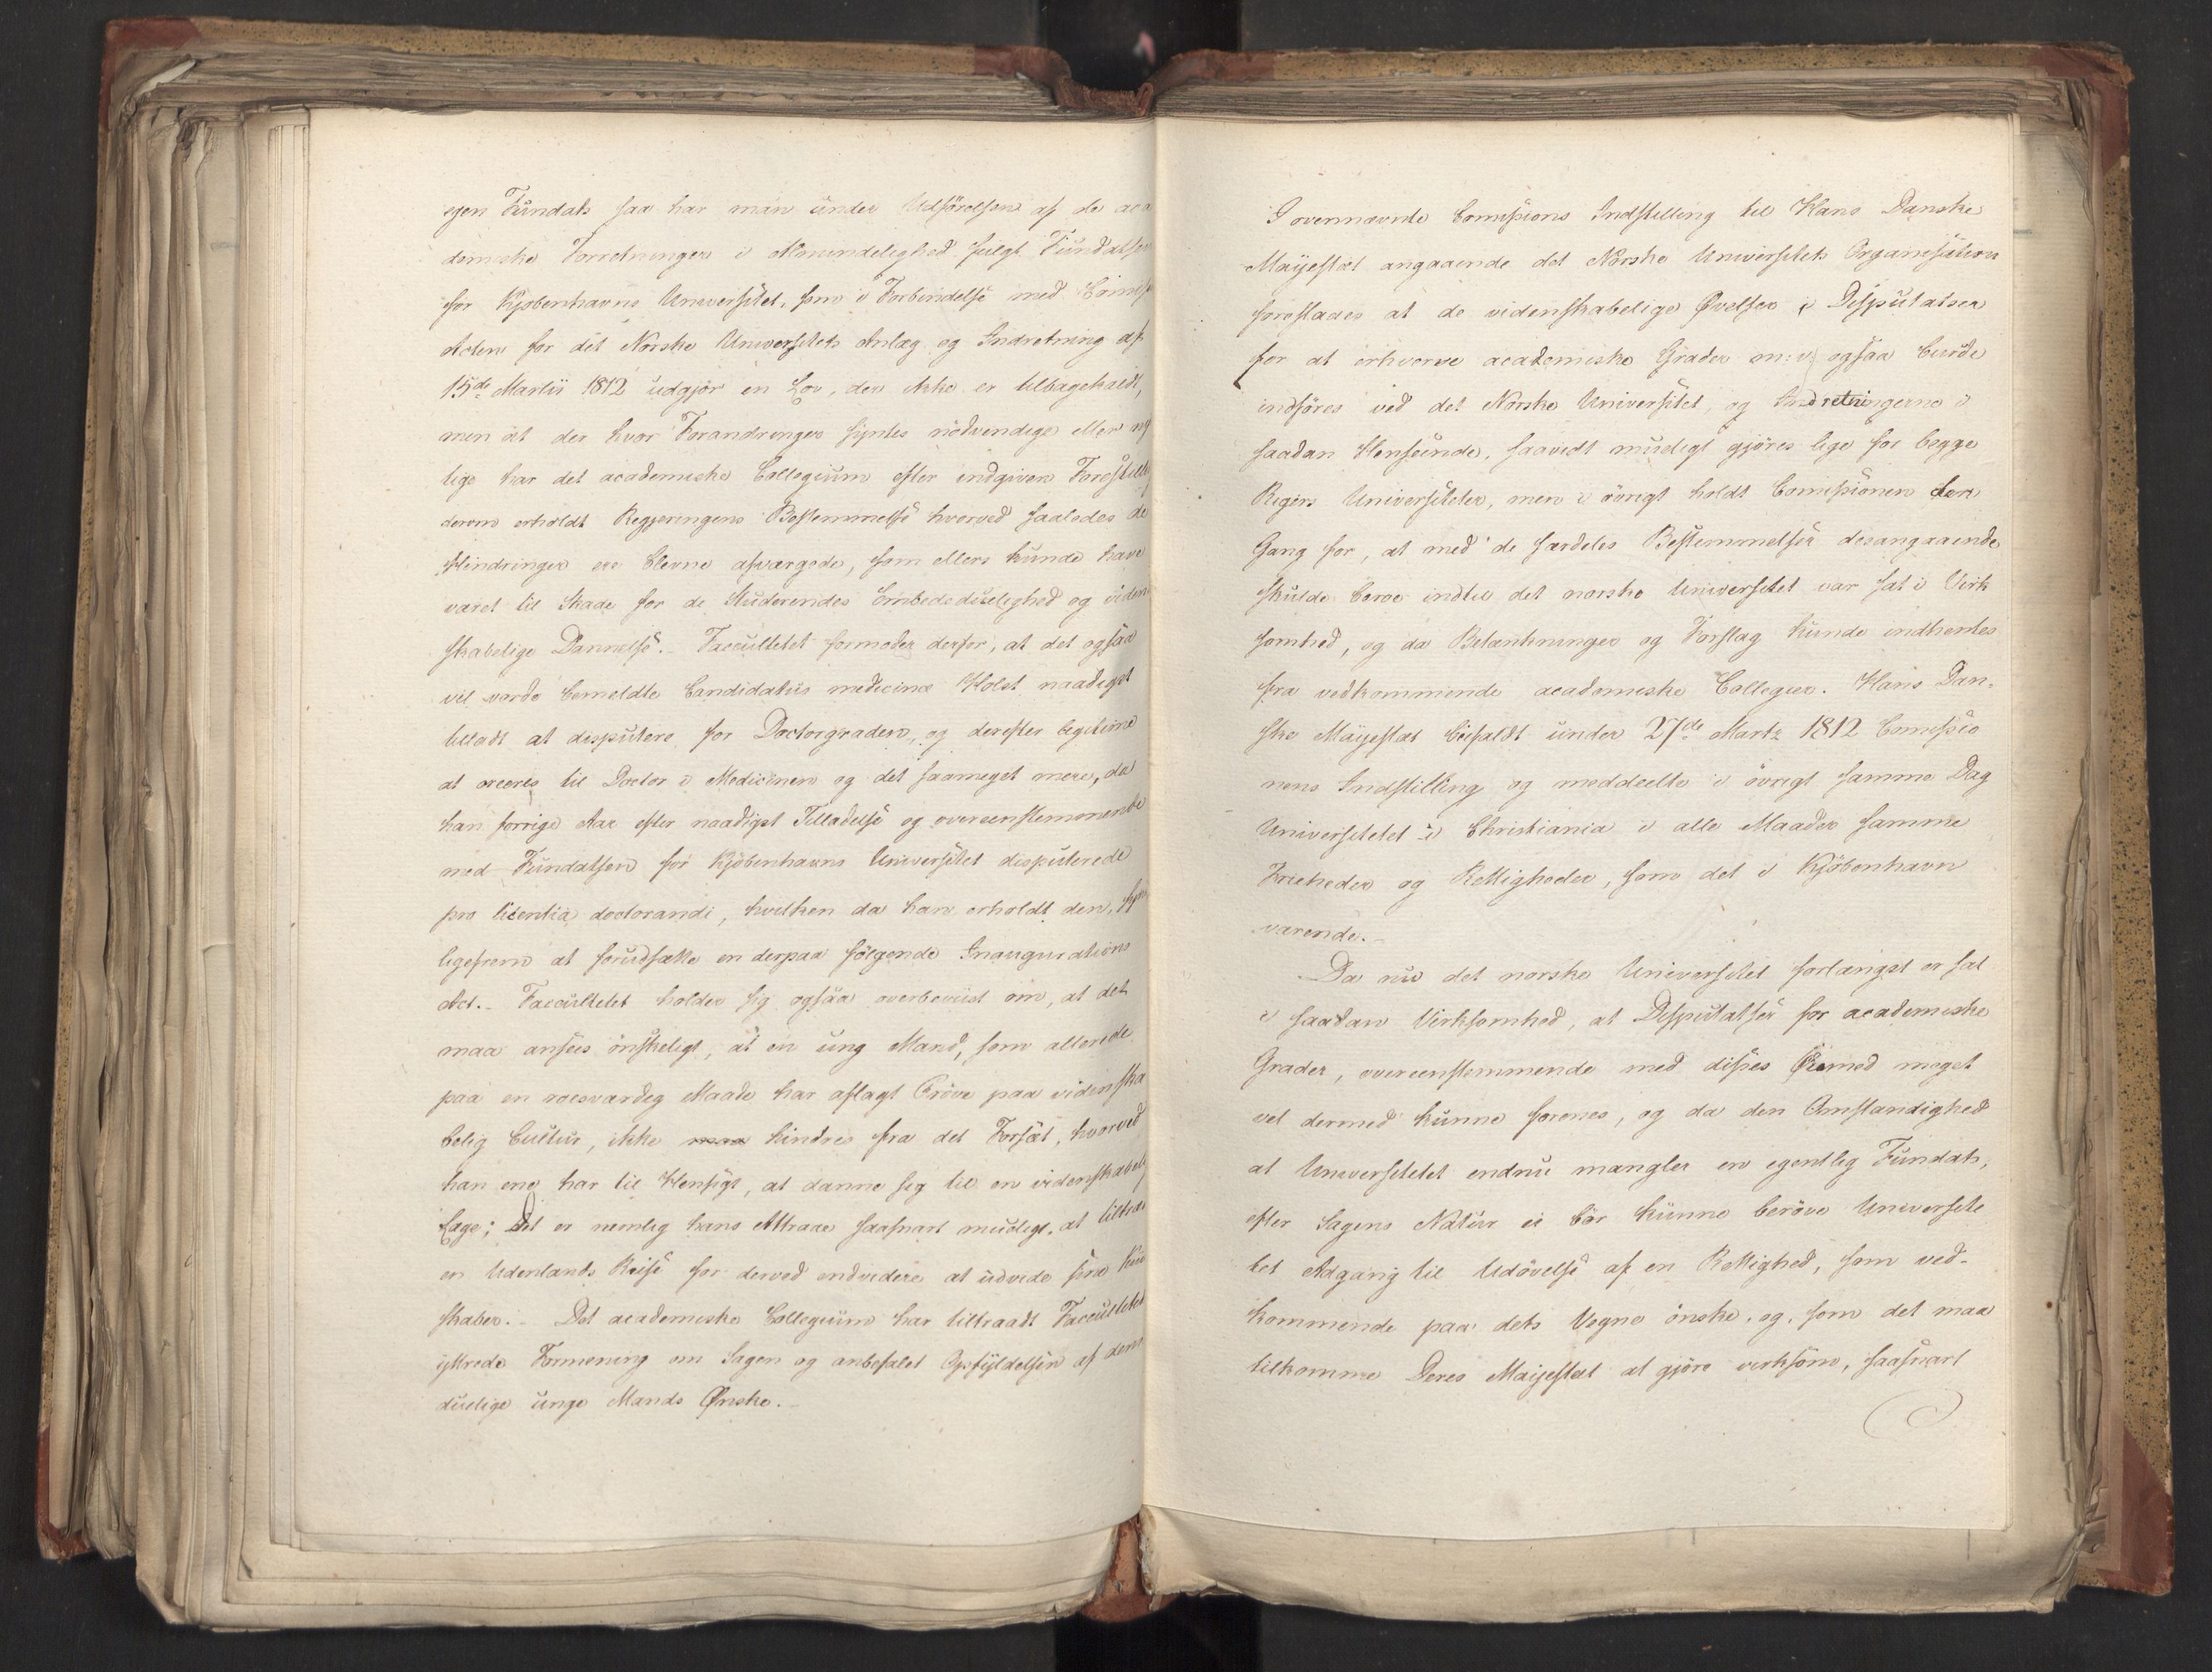 egen Fundats saa har man under Udförelsen af de aca
demiske Forretninger i Almindelighed fulgt Fundatsen
for Kjöbenhavns Universitet, som i Forbindelse med Comiss
Acten for det Norske Universitets Anlæg og Indretning af
15de Martii 1812 udgjör en Lov, der ikke er tilbagekaldt,
men at der hvor Forandringer syntes nödvendige eller ny
lige har det academiske Collegium efter indgiven Forestill
derom erholdt Regjeringens Bestemmelse hvorved saaledes de
Hindringer ere blevne afværgede, som ellers kunde have
været til Skade for de Studerendes Embedsduelighed og viden
skabelige Dannelse. - Facultetet formoder derfor, at det ogsaa
vil vorde bemeldte Candidatus medicinæ Holst naadigst
tilladt at disputere for Doctorgraden, og derefter legitime
at creeres til Doctor i Medicinen og det saameget mere, da
han forrige Aar efter naadigst Tilladelse og overeenstemmende
med Fundatsen for Kjöbenhavns Universitet disputerede
pro licentia doctorandi, hvilken da han erholdt den,
ligefrem at forudsætte en derpaa fölgende Inaugurations
Act. - Facultetet holder sig ogsaa overbeviist om, at det
maa ansees önskeligt, at en ung Mand, som allerede
paa en roesværdig Maade har aflagt Pröve paa videnska
belig Cultur, ikke maa hindres fra det Forsæt, hvorved
han ene har til Hensigt, at danne sig til en videnskabelig
Læge; Det er nemlig hans Attraae saasnart mueligt, at tiltræ
en Udenlands Reise for derved endvidere at udvide sine Kun
skaber. - Det academiske Collegium har tiltraadt Facultetets
yttrede Formening om Sagen og anbefalet Opfyldelsen af denne
duelige unge Mands Ønske. -
I ovennævnte Comissions Indstilling til Hans Danske
Majestæt angaaende det Norske Universitets Organisation
forestaaes at de videnskabelige Øvelser i Disputatser
for at erhverve academiske Grader m: v: ogsaa burde
indföres ved det Norske Universitet, og Indretningerne i
saadan Henseende, saavidt mueligt gjöres lige for begge
Rigers Universiteter, men i övrigt holdt Comissionen den
Gang for, at med de særdeles Bestemmelser desangaaende
skulde beroe indtil det norske Universitet var sat i Virk
somhed, og da Betænkninger og Forslag kunde indhentes
fra vedkommende academiske Collegier. Hans Dan-
ske Majestæt bifaldt under 27de Marts 1812 Comissio
nens Indstilling og meddeelte i övrigt samme Dag
Universitetet i Christiania i alle Maader samme
Friheder og Rettigheder, som det i Kjöbenhavn
værende. -
Da nu det norske Universitet forlængst er sat
i saadan Virksomhed, at Disputatser for academiske
Grader, overeenstemmende med disses Öiemed meget
vel dermed kunne forenes, og da den Omstændighed
at Universitetet endnu mangler en egentlig Fundats,
efter Sagens Natur ei bör kunne beröve Universite
tet Adgang til Udövelse af en Rettighed, som ved-
kommende paa dets Vegne önske, og, som det maa
tilkomme Deres Majestæt at gjöre virksom, saasnart